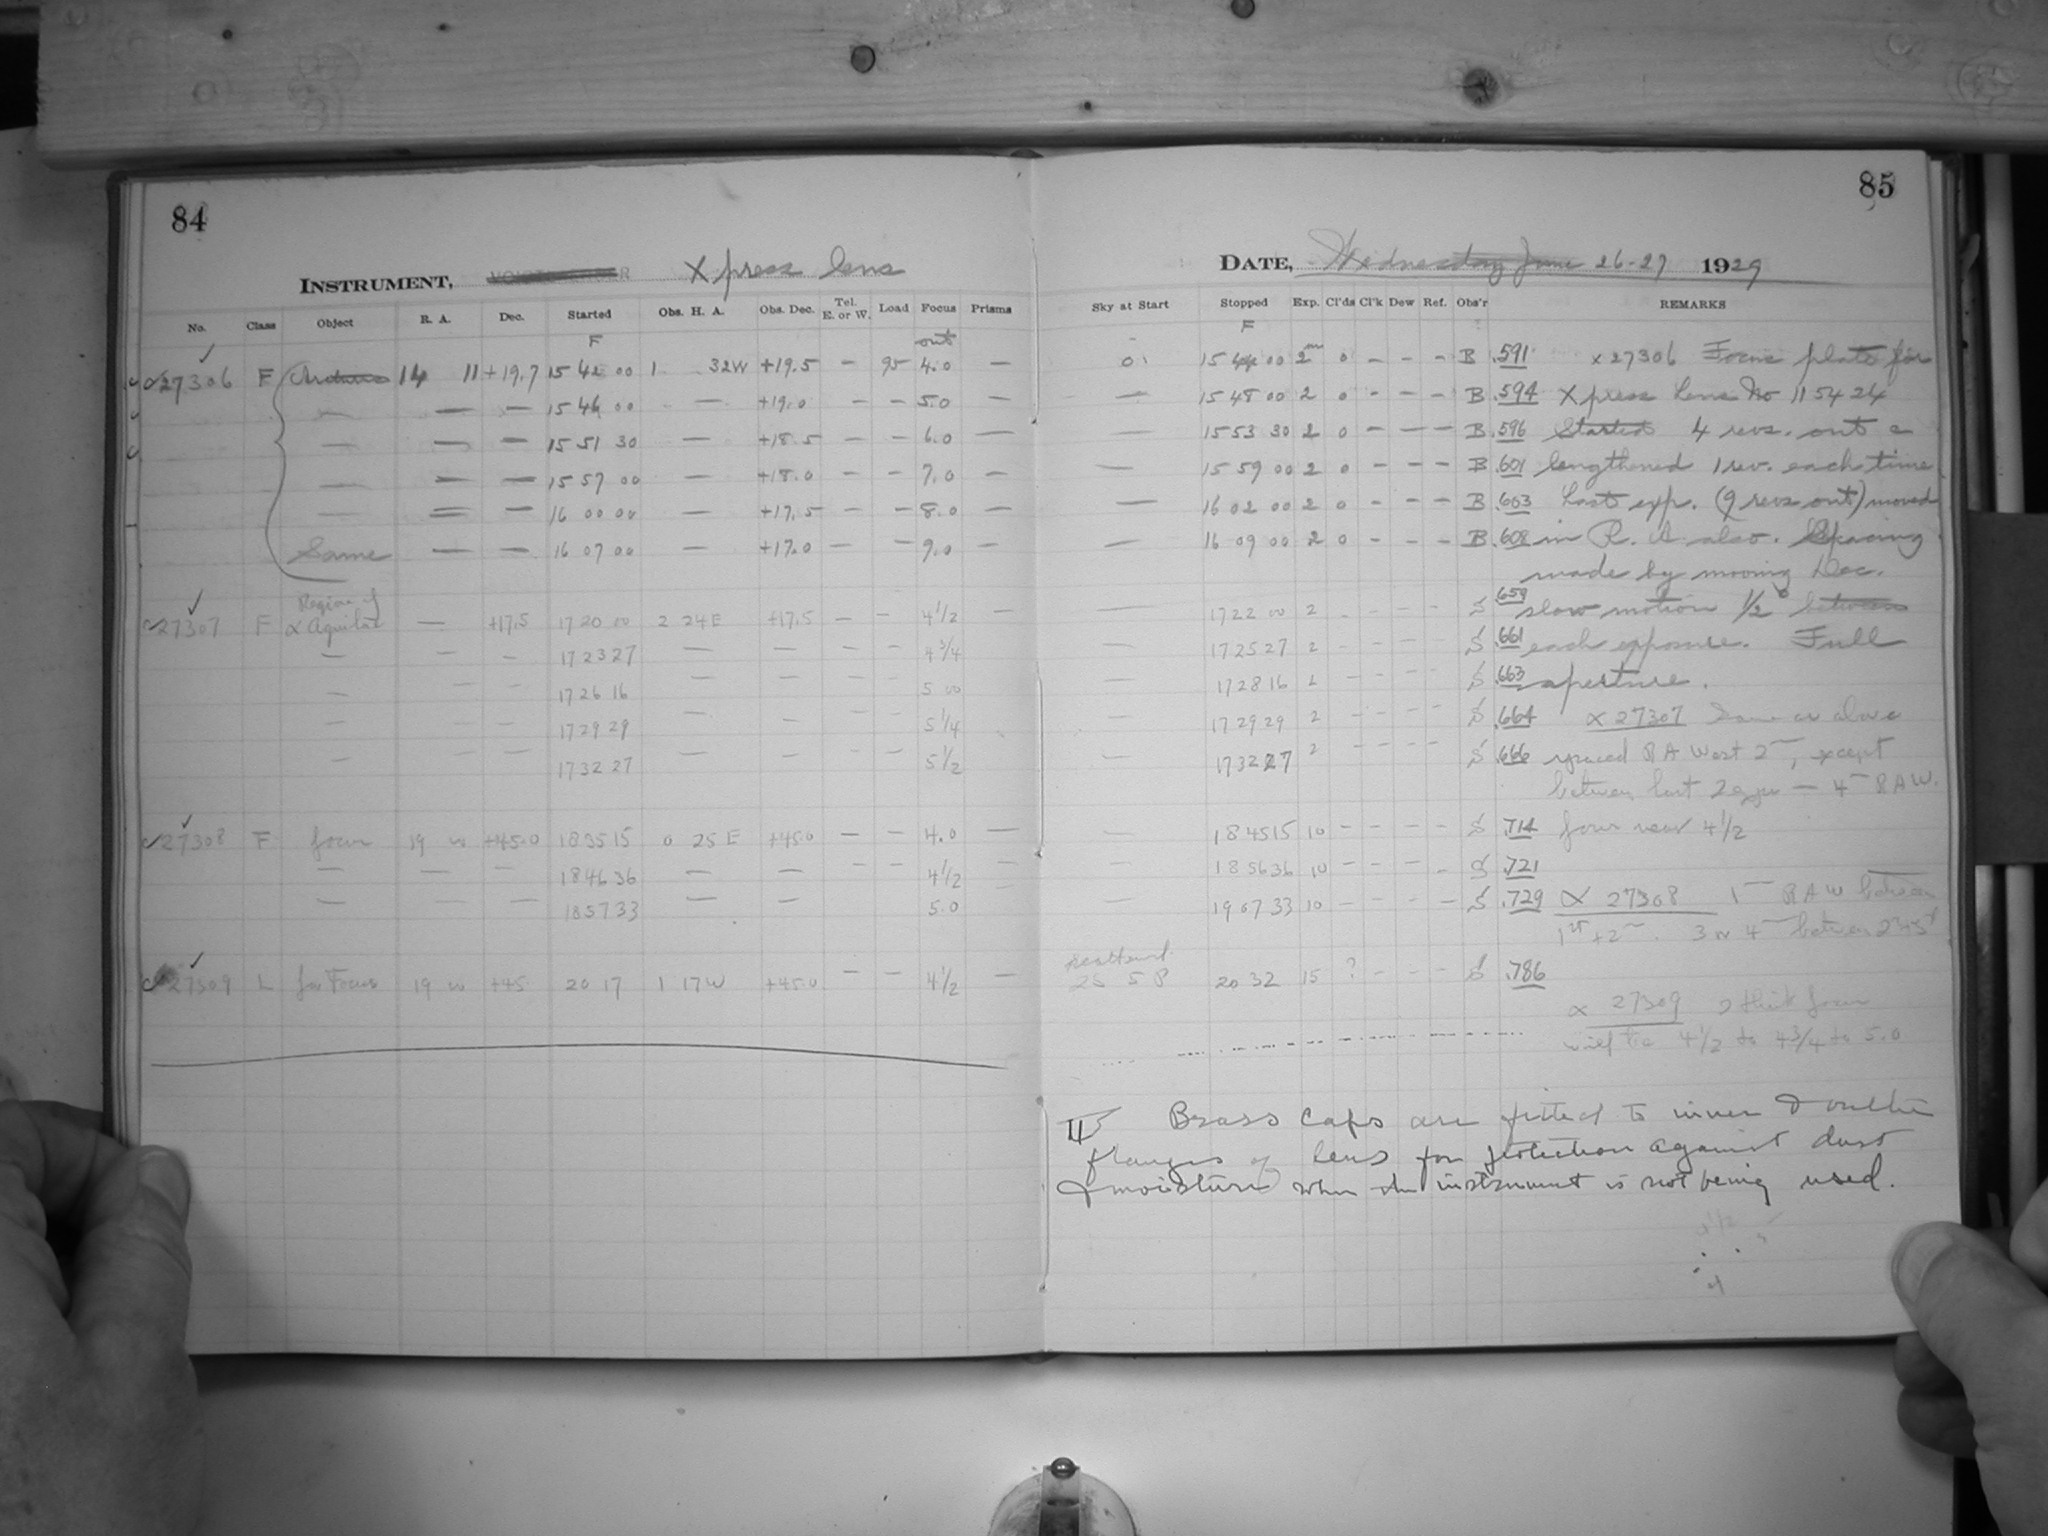 84
INSTRUMENT, Xpress lens
No. Class Object R. A. Dec. Started Obs. H. A. Obs. Dec. Tel. E. or W. Load Focus Prisms
F out
27306 F Arcturus 14 11 +19.7 15 42 00 1 32W +19.5 — 95 4.0 —
— — — 15 46 00 — +19.0 — — 5.0 —
— — — 15 51 30 — +18.5 — — 6.0 —
— — — 15 57 00 — +18.0 — — 7.0 —
— — — 16 00 00 — +17.5 — — 8.0 —
Same — — 16 07 00 — +17.0 — — 9.0 —
Region of
27307 F α Aquilae — +17.5 17 20 00 2 24E +17.5 — — 4 1/2 —
— — — 17 23 27 — — — — 4 3/4
— — — 17 26 16 — — — — 5 00
— — — 17 29 29 — — 5 1/4
— — — 17 32 27 — — — — 5 1/2
27308 F focus 19 00 +45.0 18 35 15 0 25 E +45.0 — — 4.0 —
— — — 18 46 36 — — — — 4 1/2 —
— — — 18 57 33 — — 5.0
27309 L for Focus 19 00 +45 20 17 1 17W +45.0 — — 4 1/2 —
85
DATE, Wednesday June 26-27 1929
Sky at Start Stopped Exp. Cl'ds Cl'k Dew Ref. Obs'r REMARKS
F
0 15 44 00 2m 0 - - - B .591 x27306 Focus plate for
— 15 48 00 2 0 - - - B .594 Xpress Lens No 115424
— 15 53 30 2 0 - - - B .596 Started 4 revs. out &
— 15 59 00 2 0 - - - B .601 lengthened 1 rev. each time
— 16 02 00 2 0 - - - B .603 Last exp. (9 revs out) moved
— 16 09 00 2 0 - - - B .608 in R. A also. Spacing
made by moving Dec.
— 17 22 00 2 - - - S .659 slow motion 1/2° between
— 17 25 27 2 - - - S .661 each exposure. Full
— 17 28 16 2 - - - S .663 aperture.
— 17 29 29 2 - - - S .664 x 27307 Same as above
— 17 32 27 2 - - - S .666 spaced RA West 2m, except
between last 2 exps — 4m RAW.
— 18 45 15 10 - - - - S .714 focus near 4 1/2
— 18 56 36 10 - - - - S .721
— 19 07 33 10 - - - - S .729 x 27308 1m RAW between
1st + 2nd. 3 or 4m between 2nd + 3rd
scattered
25 S P 20 32 15 ? - - - S .786
x 27309 I think focus
will be 4 1/2 to 4 3/4 to 5.0
Brass caps are fitted to inner & outer
flanges of lens for protection against dust
& moisture when the instrument is not being used.